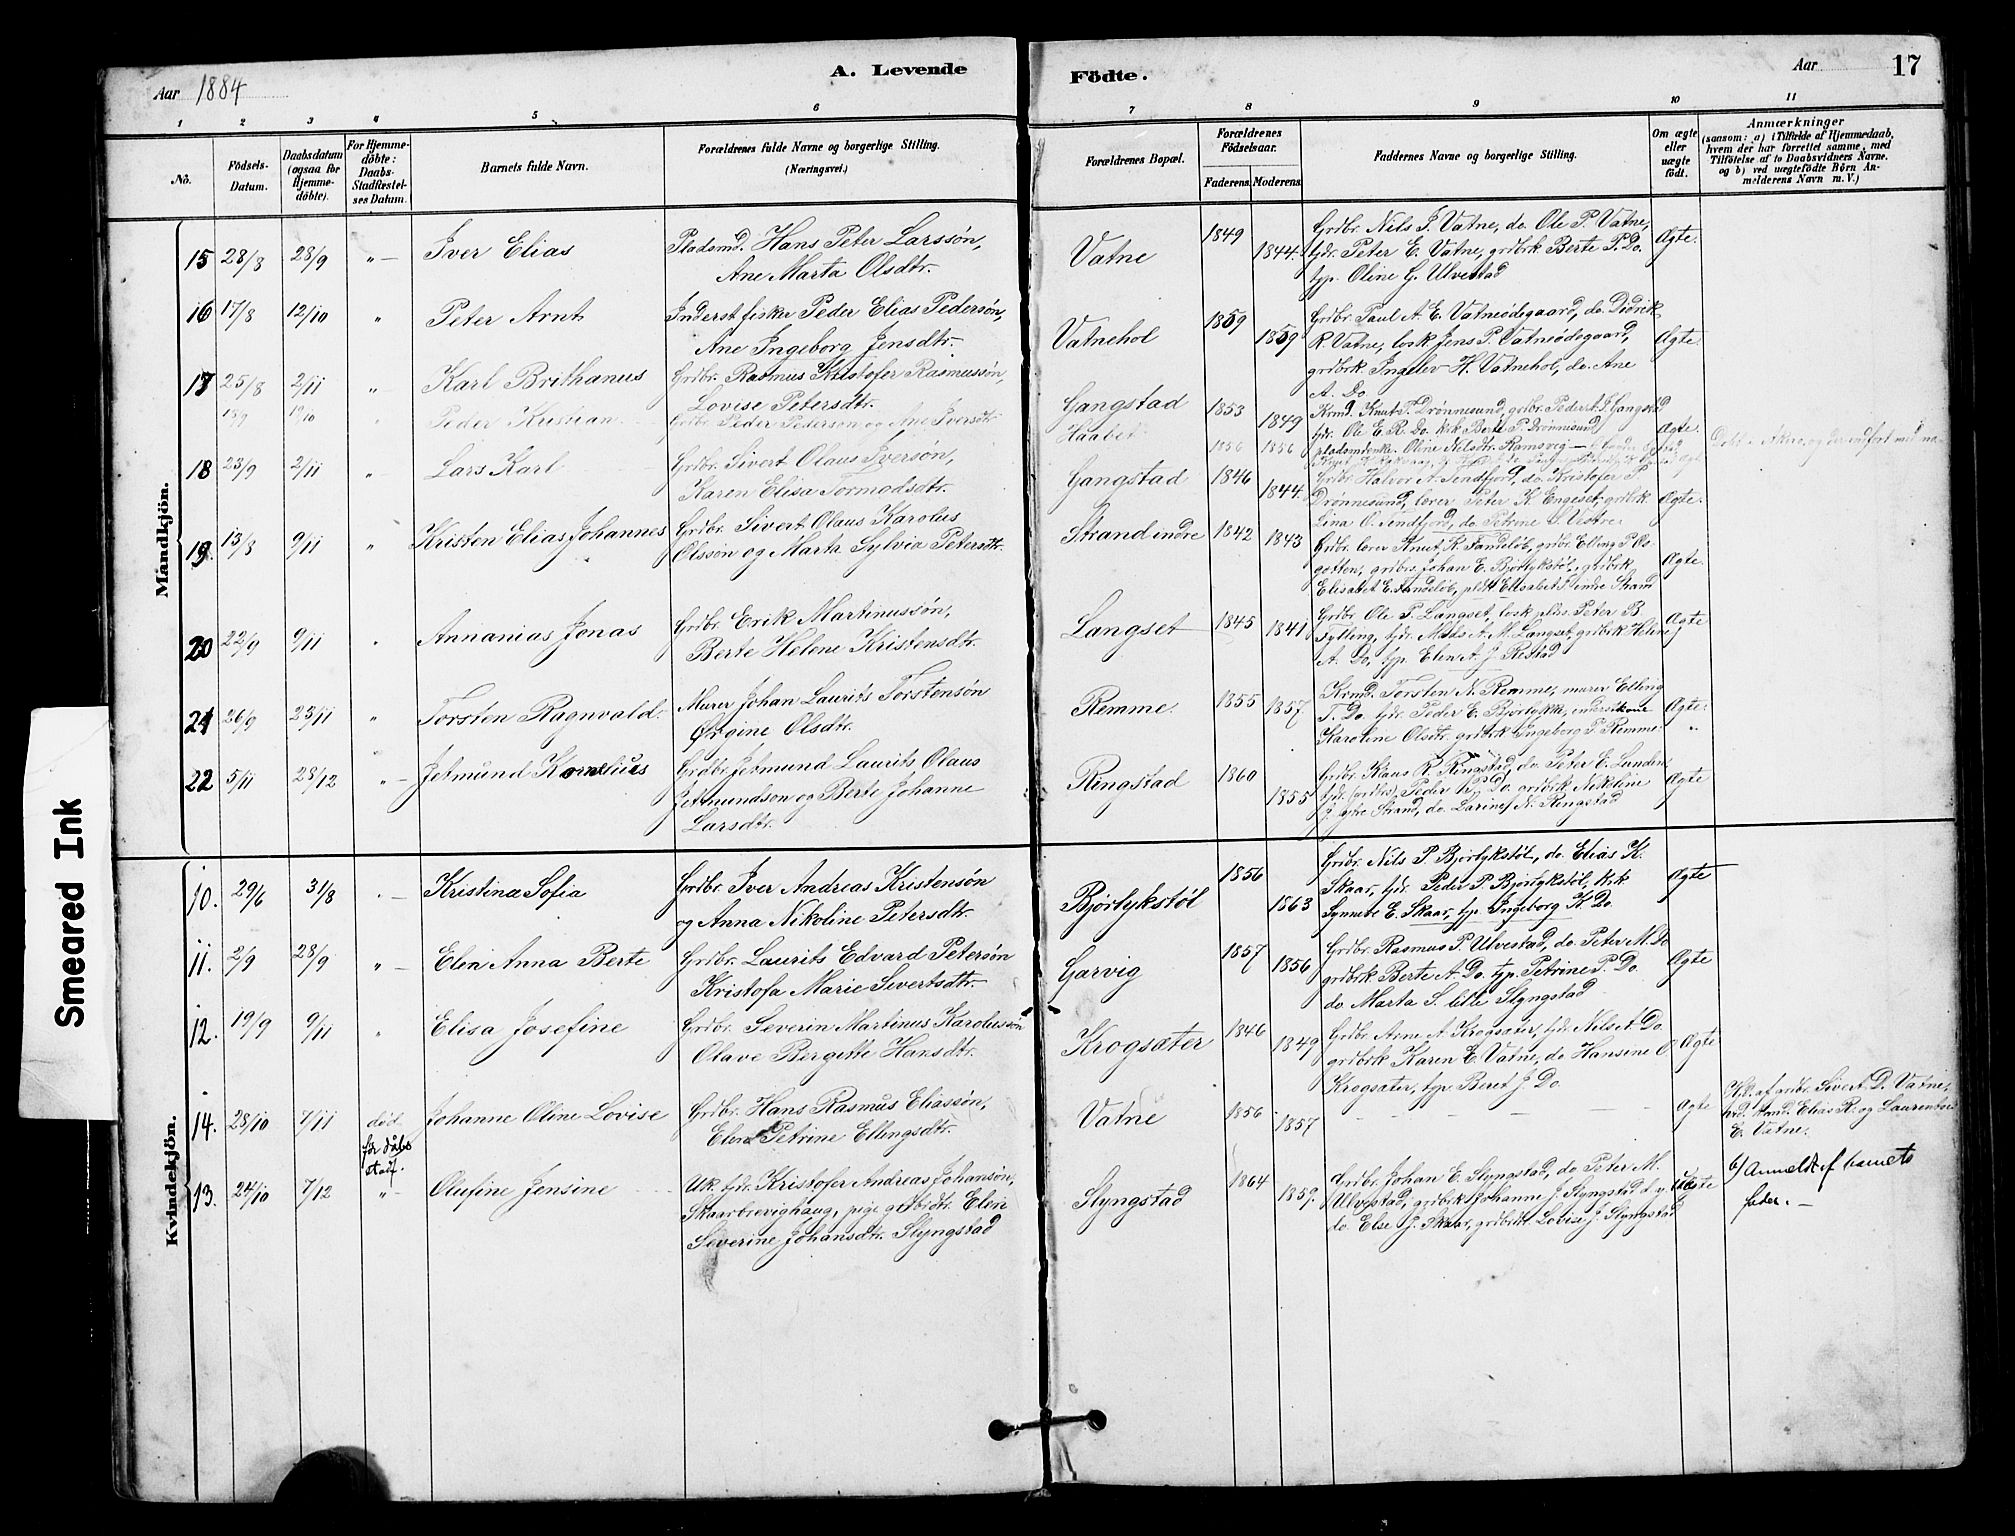 Aar 1884
A. Levende
Födte.
Aar
17
1 2 3 4 5 6 7 8 9 10 11
No.
Födsels-Datum.
Daabsdatum (ogsaa for Hjemme-döbte).
For Hjemme-döbte: Daabs-Stadfæstel-ses Datum.
Barnets fulde Navn.
Forældrenes fulde Navne og borgerlige Stilling.
(Næringsvei.)
Forældrenes Bopæl.
Forældrenes Födselsaar.
Faderens. Moderens.
Faddernes Navne og borgerlige Stilling.
Om ægte eller uægte födt.
Anmærkninger
(saasom: a) i Tilfælde af Hjemmedaab,
hvem der har forrettet samme, med
Tilföielse af to Daabsvidners Navne.
og b) ved uægtefödte Börn An-
melderens Navn m. V.)
Mandkjön.
15 28/8 28/9 " – Iver Elias Pladsmd. Hans Peter Larssön, Vatne 1849 Grdbr. Nils I. Vatne, do. Ole P. Vatne,
Ane Marta Olsdtr. 1844. gdr. Peter E. Vatne, grdbrk Berte P. Do. Ægte.
typ. Oline G. Ulvestad
16 17/8 12/10 " Peter Arnt Inderst fisker Peder Elias Pedersön, Vatnehol 1859 Grdbr. Paul A. E. Vatneödegaard, do. Didrik
Ane Ingeborg Jensdtr. 1859 R. Vatne, losk Jens P. Vatneödegaard, Ægte.
grdbrk Ingelev H. Vatnehol, do. Ane
A. Do.
17 25/8 2/11 " Karl Brithanus Grdbr. Rasmus Kristofer Rasmussön, Gangstad 1853 1849
Lovise Petersdtr. Krmd. Knut T. Drönnesund, grbr. Peder A. I. Gangstad
gdr. Ole E. R. Do. krk Berte P. Drönnesund Ægte.
15/9 19/10 " Peder Kristian Grdbr. Peder Pederson og Ane Iversdtr Haabet 1856 1856 pladsmdenke. Oline Nilsdtr. Ramsvig
18 23/9 2/11 " Lars Karl Grdbr. Sivert Olaus Iversön, Gangstad 1846 Grdbr. Halvor A. Tendfjord, do. Kristofer P.
Karen Elisa Tormodsdtr. 1844. Drönnesund, lærer Peter K. Engeset, grdbrk Ægte.
Lina O. Tendfjord, do. Petrine S. Vestre
19. 13/8 9/11 " Kristen Elias Johannes Grdbr. Sivert Olaus Karolus Strand indre 1842 1843
Olssön og Marta Sylvia Petersdtr. Grdbr. lærer Knut R. Tandelöb, grdbr. Elling P. Os-
gotten, grdbrs. Johan E. Björlykstöl, grdbrk Ægte.
Elisabet E. Tandelöb, Elisabet P. indre Strand
20 22/9 9/11 " Annanias Jonas Grdbr. Erik Martinussön, Langset 1845 1841 Grdbr Ole P. Langset, losk pldss. Peter B
Berte Helene Kristensdtr. Fylling, gdr. Mads A. M. Langset, grdbrk Helene Ægte
A. Do, typ Elen A. J. Restad
21 26/9 23/11 " Torsten Ragnvald. Murer Johan Laurits Torstensön Remme. 1855 1857. Krmd. Torsten N. Remme, murer Elling
Örgine Olsdtr. T. Do. gdr. Peder E. Björlykke, enderstkone Ægte.
Karoline Olsdtr. grdbrk Ingeborg P. Remme "
22 5/11 28/12 " – Jetmund Kornelius Grdbr Jetmund Laurits Olaus Ringstad 1860 Grdbr. Klaus R. Ringstad, do. Peter E. Lunden,
Jetmundson og Berte Johanne 1855 gdr. Peder P. Do. grdbrk Nikoline Ægte
Larsdtr. J. ytre Strand, do. Larine N. Ringstad
Kvindekjön.
10. 29/6 31/8 " – Kristina Sofia Grdbr. Iver Andreas Kristensön Björlykstöl 1856 Grdbr. Nils P. Björlykstöl, do. Elias K.
og Anna Nikoline Petersdtr. 1863 Skaar, gdr. Peder P. Björlykstöl, krk Ægte
Synneve E. Skaar, typ. Ingeborg K. Do.
11. 2/9 28/9 " – Elen Anna Berte Grdbr. Laurits Edvard Petersön Garvig 1857 1856 Grdbr. Rasmus P. Ulvestad, do. Peter M. Do
Kristofa Marie Sivertsdtr. grdbrk Berte A. Do. typ. Petrine P. Do. Ægte
do Marta S. lille Slyngstad
12. 19/9 9/11 " Elisa Josefine Grdbr. Severin Martinus Karolussön Krogsæter 1846 1849 Grdbr Arne A. Krogsæter, gdr. Nils A. Do.
Olave Bergitte Hansdtr. grdbrk Karen E. Vatne, do Hansine O Ægte
Krogsæter, typ. Beret J. Do
14. 28/10 7/11 död för dåbs staf. Johanne Oline Lovise Grdbr. Hans Rasmus Eliassön, Vatne 1856 – 1857 – – – – – Ægte
Elen Petrine Ellingsdtr. af grdbr. Sivert D. Vatne,
Elias R. og Laurentse
E. Vatne.
13. 24/10 7/12 " Olufine Jensine Uk. gdr. Kristofer Andreas Johansön, Slyngstad 1864 1859. Grdbr. Johan E. Slyngstad, do. Peter M.
Skaarbrevighaug, pige grbdtr. Elen Ulvestad, grdbrk Johanne J. Slyngstad Uægte
Severine Johansdtr. Slyngstad do. Else J. Skaar, grdbrdt. Lovise J. Slyngstad
b) Anmeldt af barnets
fader. –
Smeared Ink